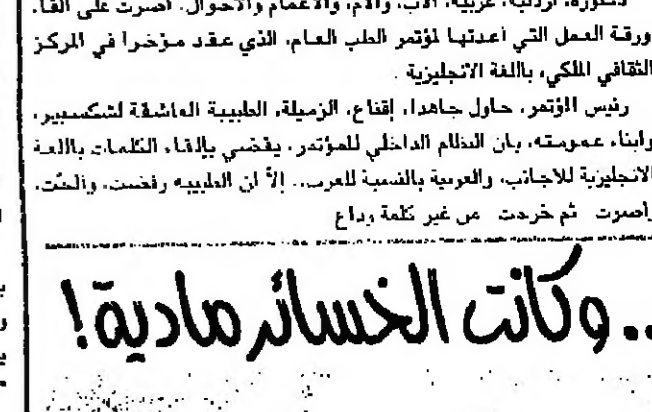 دكتورة، اردنية، عربية، الاب، والام، والاعمام والاخوال. اصرت على القاء،
ورقة العمل التي اعدتها لمؤتمر الطب العام، الذي عقد مؤخرا في المركز
الثقافي الملكي، باللغة الانجليزية .
رئيس المؤتمر، حاول جاهدا، إقناع، الزميلة، الطبيبة العاشقة لشكسبير،
وابناء عمومته، بان النظام الداخلي للمؤتمر، يقضي بإلقاء الكلمات باللغة
الانجليزية للاجانب، والعربية بالنسبة للعرب.. إلاّ ان الطبيبه رفضت، والحّت،
واصرت ثم خرجت من غير كلمة وداع
.. وكانت الخسائر مادية !